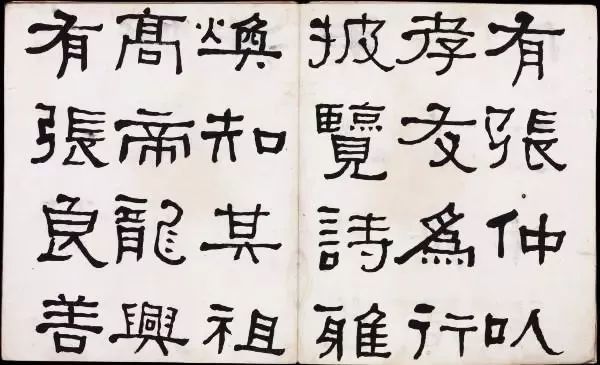 有張仲以
孝友爲行
披覽詩雅
煥知其祖
髙帝龍興
有張良善